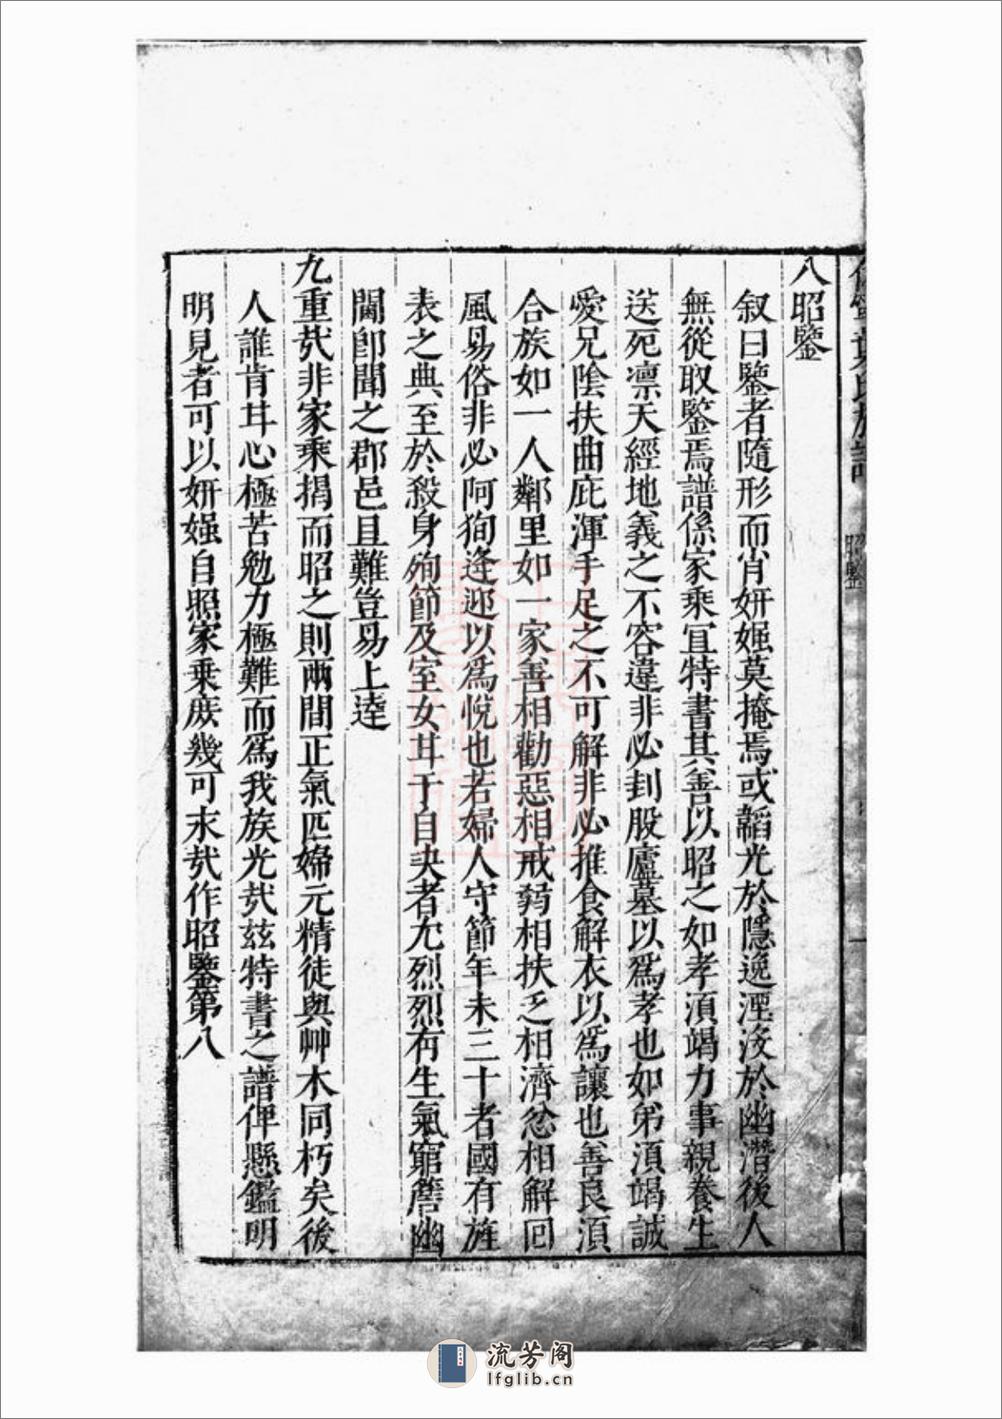 昭鑒
八昭鑒
叙曰鑒者隨形而肖妍媸莫掩焉或韜光於隱逸湮沒於幽潛後人
無從取鑒焉譜係家乘宜特書其善以昭之如孝湏竭力事親養生
送死凛天經地義之不容違非必刲股廬墓以爲孝也如弟湏竭誠
愛兄陰扶曲庇渾手足之不可解非必推食解衣以爲讓也善良湏
合族如一人鄰里如一家善相勸惡相戒弱相扶乏相濟忿相解囘
風昜俗非必阿狥逢迎以爲悅也若婦人守節年未三十者國有旌
表之典至於殺身殉節及室女耳于自决者尤烈烈有生氣窮簷幽
闥卽聞之郡邑且難豈昜上逹
九重㢤非家乘揭而昭之則兩間正氣匹婦元精徒與艸木同朽矣後
人誰肯耳心極苦勉力極難而爲我族光㢤玆特書之譜俾懸鑑明
明見者可以妍媸自照家乘庻幾可末㢤作昭鑒第八
流芳阁
lfglib.cn